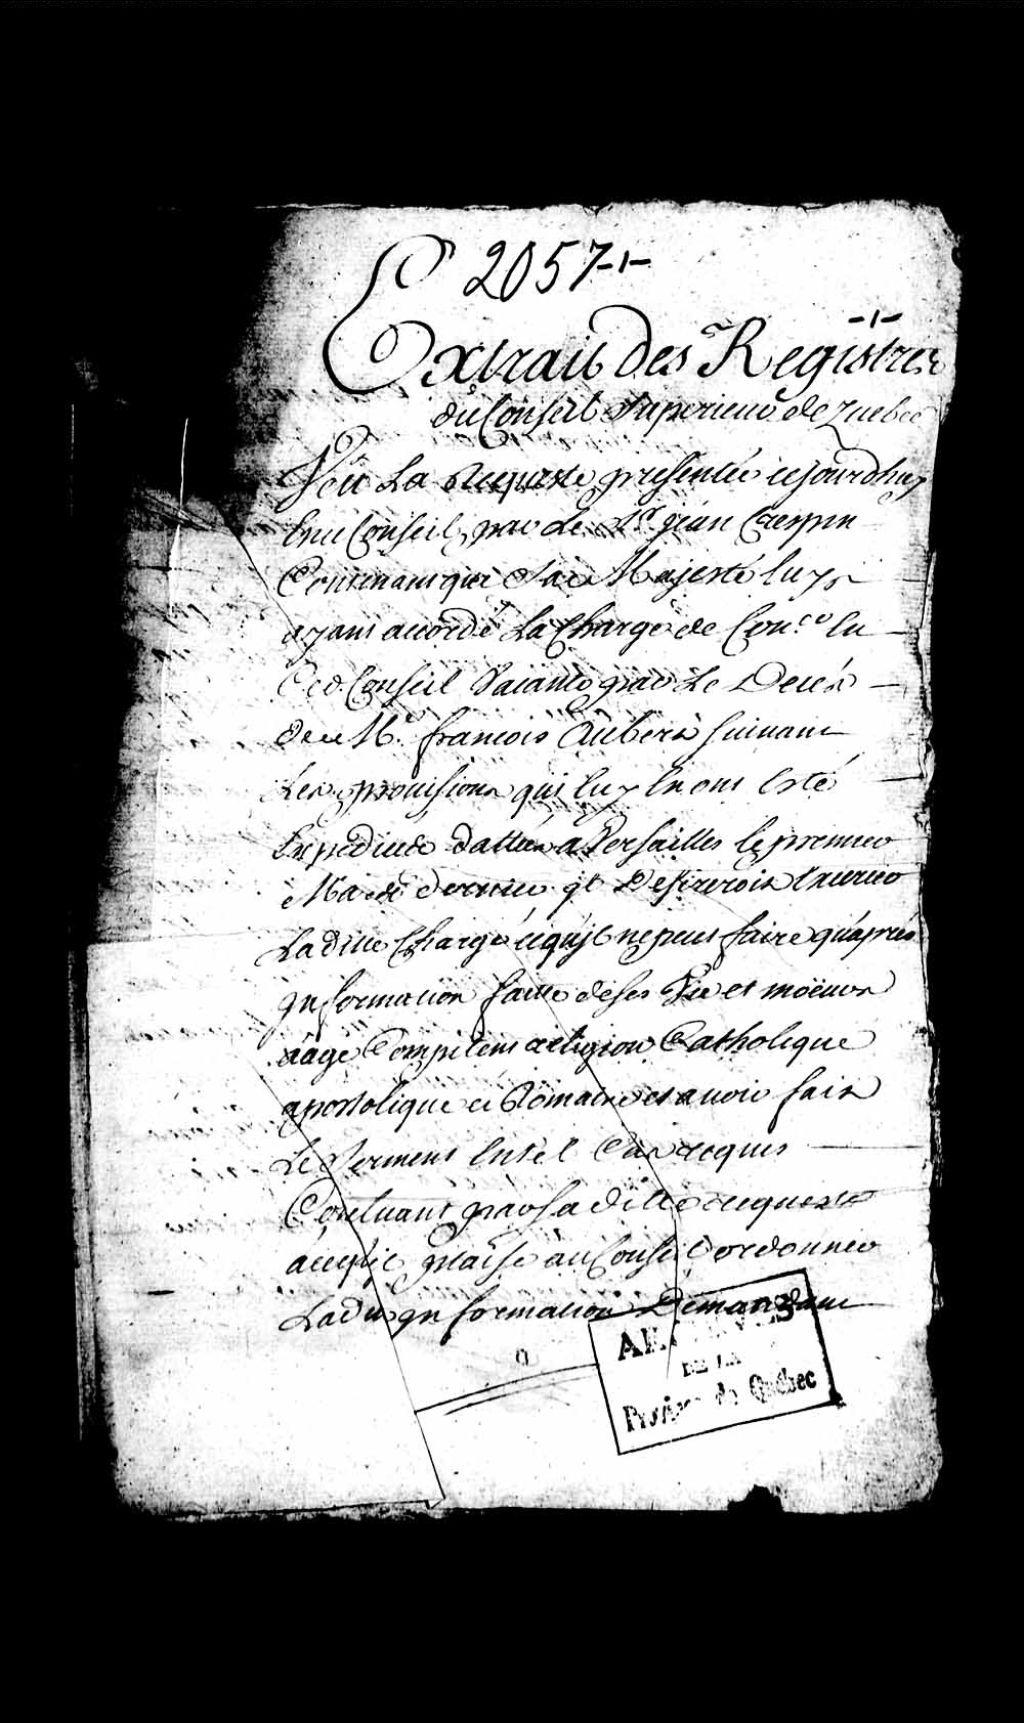 2057-1-
-1-
Extrait des Registres
du Conseil Superieur de Quebec
Veu La Requeste presentée cejourdhuy
En ce Conseil, par Le Sr. jean Crespin
Contenant que Sa Majesté luy
ayant accordé La Charge de Coner. En
Ced. Conseil Vacante par Le Decés
de Me. francois Aubert suivant
Les provisions qui luy En ont Esté
Expediées dattées a Versailles le premier
May dernier Jl Desireroit Exercer
Laditte Charge ce quJl ne peut faire quaprés
Jnformation faitte de ses Vie et moeurs
aage Competent religion Catholique
apostolique et Romaine et avoir fait
Le Serment En tel Cas requis
Concluant par sa ditte requeste
a ce quJl plaise au Conseil ordonner
Ladte Jnformation Demandant
ARCHIVES
DE LA
Province de Québec